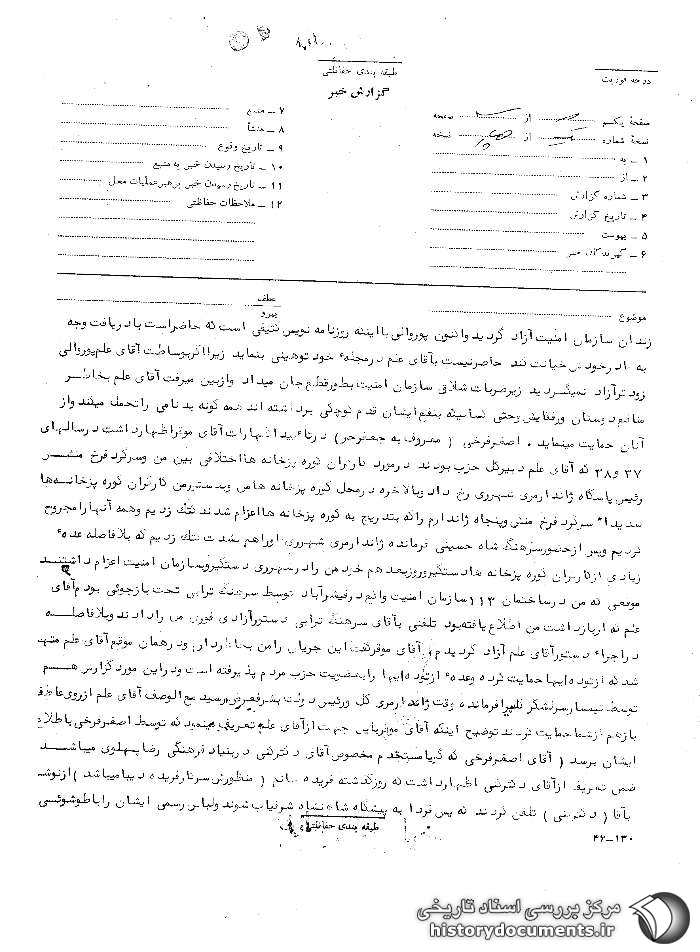 طبقه بندی حفاظتی
درجه فوریت
گزارش خبر
صفحه یکم از صفحه
نسخه شماره از نسخه
۱ – به
۲ – از
۳ – شماره گزارش
۴ – تاریخ گزارش
۵ – پیوست
۶ – گیرندگان خبر
۷ – منبع
۸ – منشأ
۹ – تاریخ وقوع
۱۰ – تاریخ رسیدن خبر به منبع
۱۱ – تاریخ رسیدن خبر برهبر عملیات محل
۱۲ – ملاحظات حفاظتی
موضوع
عطف
پیرو
زندان سازمان امنیت آزاد گردید واکنون پوروالی با اینکه روزنامه نویس کثیفی است که حاضراست با دریافت وجه
به مادرخودش خیانت کند حاضرنیست بآقای علم درمجله خود توهینی بنماید زیرا اگربوساطت آقای علم پوروالی
زودترآزاد نمیگردید زیرضربات شلاق سازمان امنیت بطورقطع جان میداد وازبین میرفت آقای علم بخاطر
منافع دوستان ورفقایش وحتی کسانیکه بنفع ایشان قدم کوچکی برداشته اند همه گونه بدنامی راتحمل میکند واز
آنان حمایت مینماید . اصغرفرخی ( معروف به جعفرحر) درتأیید اظهارات آقای موقراظهارداشت درسالهای
۳۷ و ۳۸ که آقای علم دبیرکل حزب بودند درمورد کارگران کوره پزخانه هااختلافی بین من وسرگرد فرخ منش
رئیس پاسگاه ژاندارمری شهرری رخ داد وبالاخره درمحل کوره پزخانه هامن وبدستورمن کارگران کوره پزخانه ها
شدیداً سرگرد فرخ منش وپنجاه ژاندارم راکه بتدریج به کوره پزخانه هااعزام شدند کتک زدیم وهمه آنهارامجروح
کردیم وپس ازحضورسرهنگ شاه حسینی فرمانده ژاندارمری شهرری اوراهم بشدت کتک زدیم که بلافاصله عده
زیادی ازکارگران کوره پزخانه هادستگیروروزبعد هم خود من رادرشهرری دستگیروبسازمان امنیت اعزام داشتند
موقعی که من درساختمان ۱۱۳ سازمان امنیت واقع درقیصرآباد توسط سرهنگ ترابی تحت بازجوئی بودم آقای
علم که ازبازداشت من اطلاع یافته بود تلفنی بآقای سرهنگ ترابی دستورآزادی فوری من رادادند وبلافاصله
دراجرا دستورآقای علم آزاد گردیدم آقای موقرگفت این جریان رامن بخاطردارم ودرهمان موقع آقای علم متهم
شد که ازتوده ایها حمایت کرده وعده ازتوده ایها رابعضویت حزب مردم پذیرفته است ودراین موردگزارش هم
توسط تیمسارسرلشگر فرمانده وقت ژاندارمری کل ورئیس دولت بشرفعرض رسید مع الوصف آقای علم ازروی عاطفه
بازهم ازشما حمایت کردند توضیح اینکه آقای موقربدین جهت ازآقای علم تعریف مینمود که توسط اصغرفرخی باطلاع
ایشان برسد ( آقای اصغرفرخی که گویا مستخدم مخصوص آقای دکترکنی دربنیاد فرهنگی رضا پهلوی میباشد
ضمن تعریف ازآقای دکترکنی اظهارداشت که روزگذشته فریده خانم ( منظورش سرکارفریده دیبا میباشد )
بآقا ( دکترکنی ) تلفن کردند که پس فردا به پیشگاه شاهنشاه شرفیاب شوند ولباس رسمی ایشان رابا
طبقه بندی حفاظتی
۴۶–۱۳۰
مرکز بررسی اسناد تاریخی
historydocuments.ir